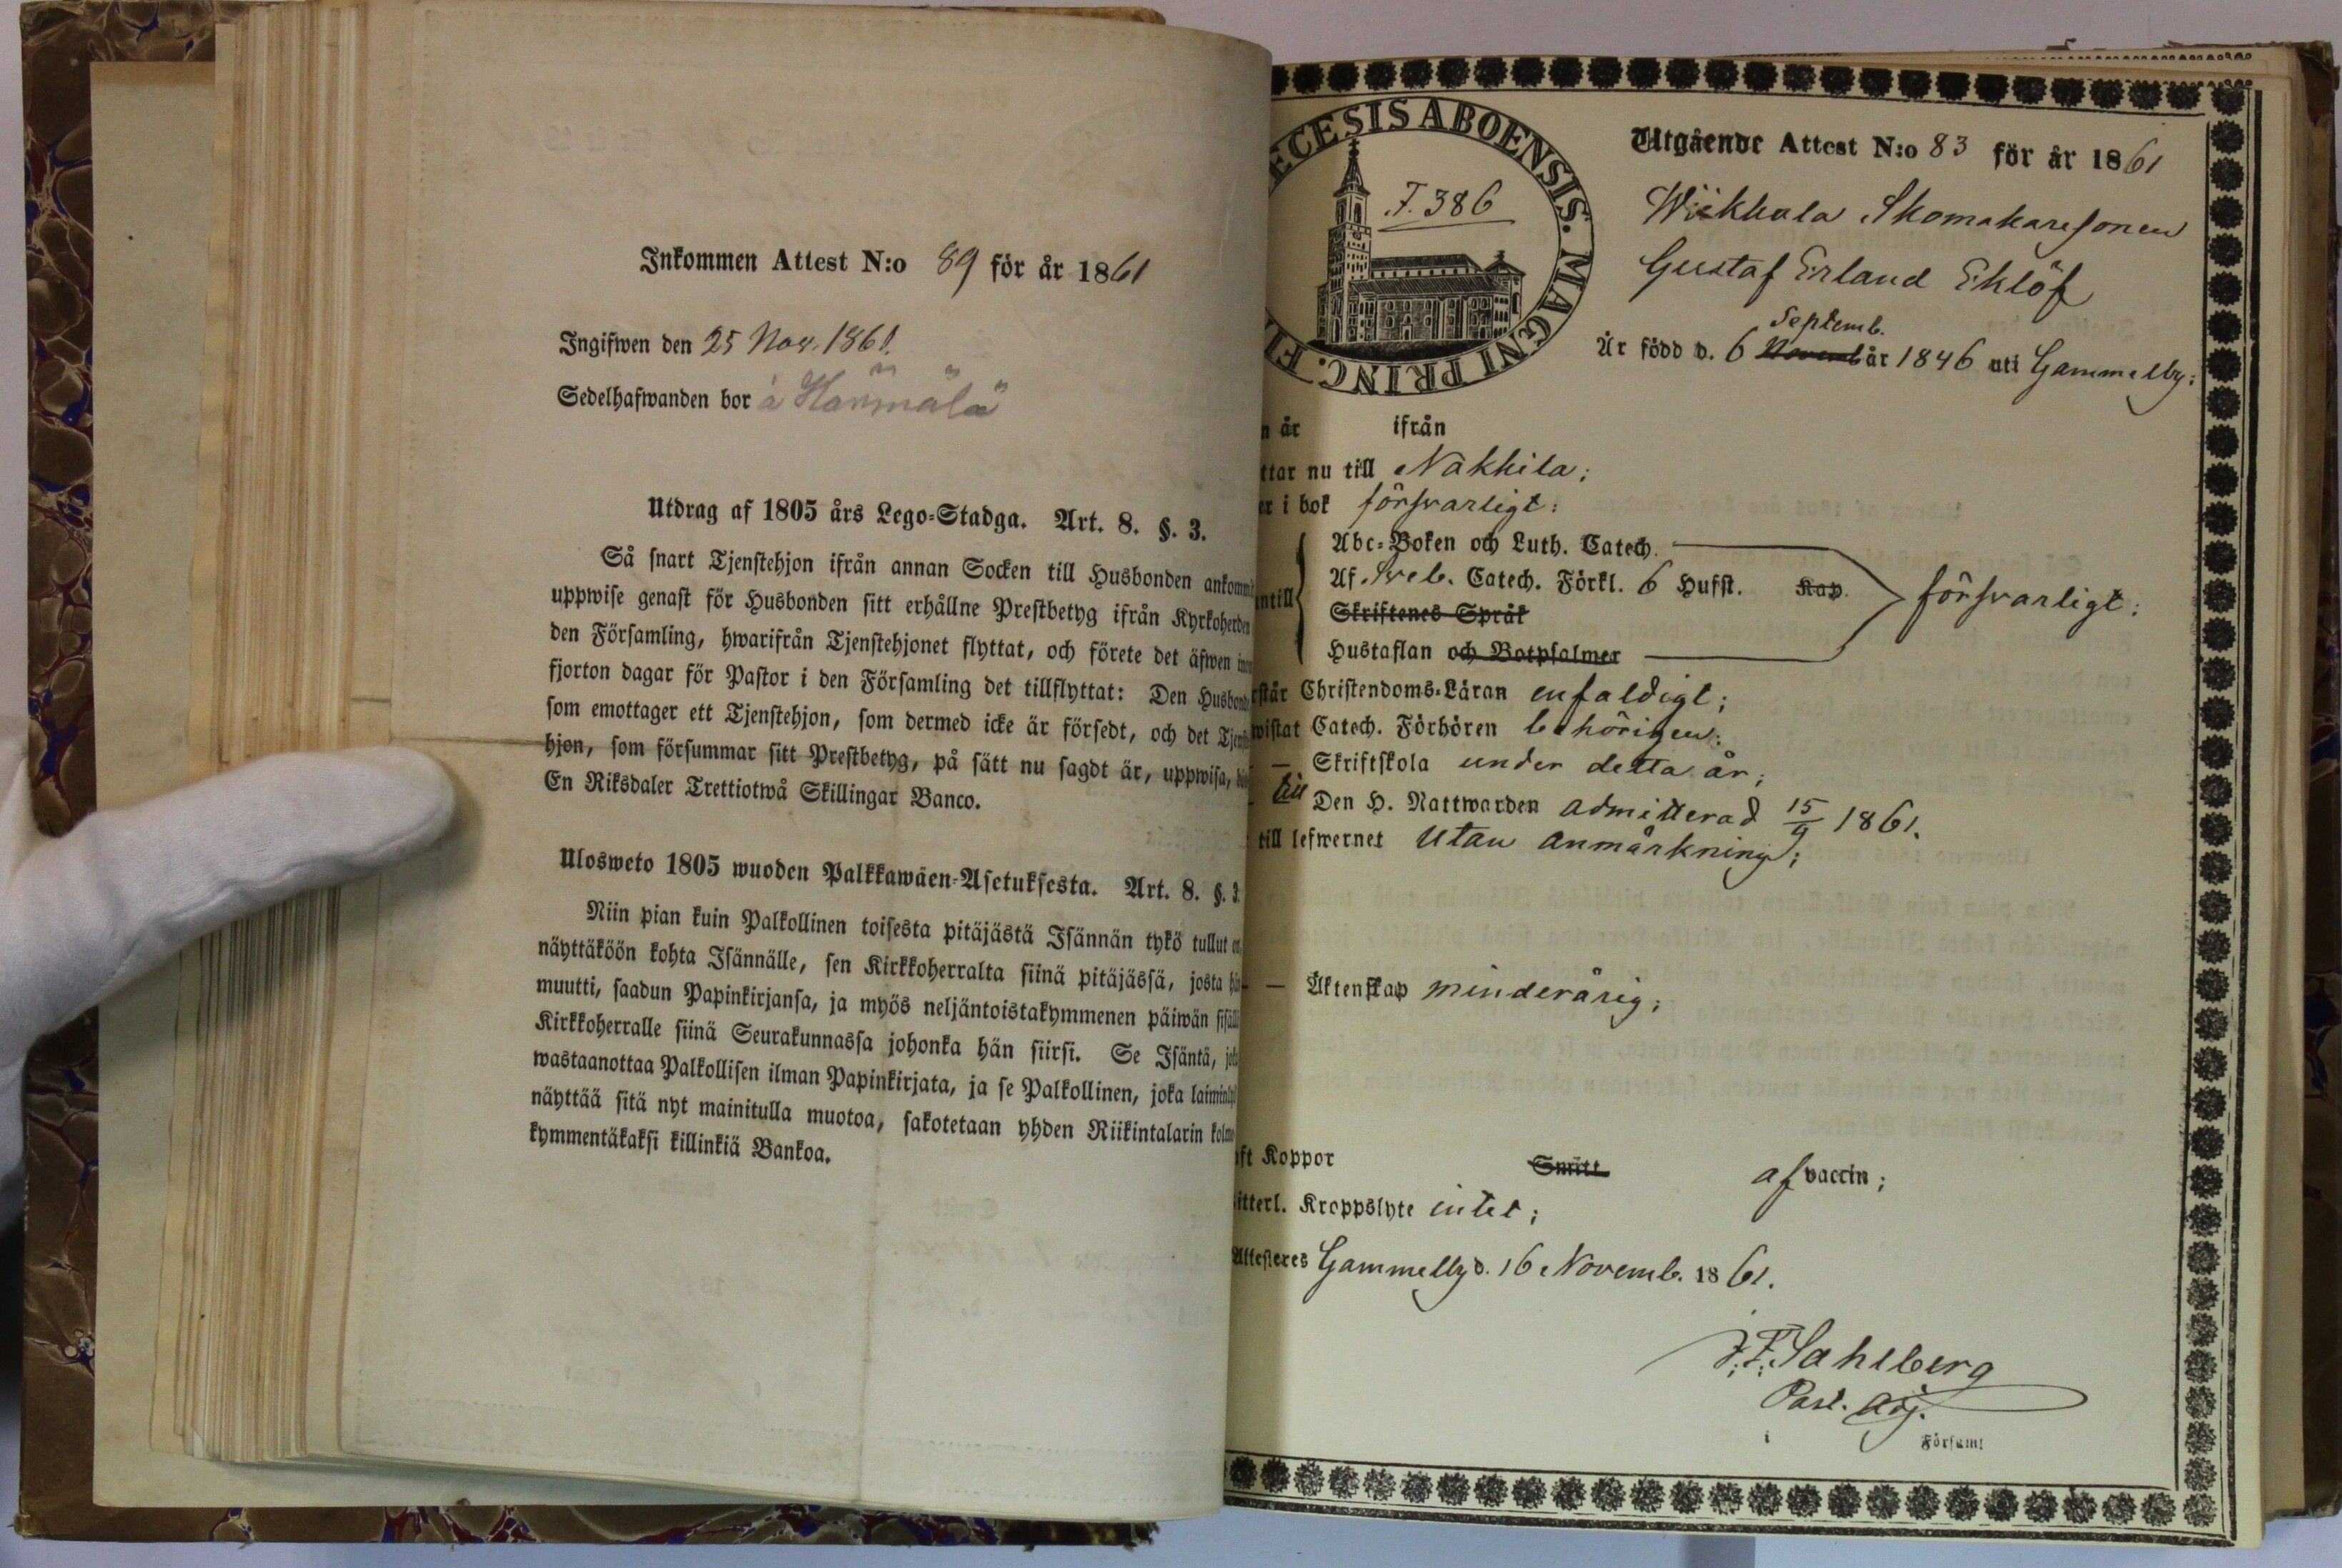 Inkommen Attest N:o 89 för år 1861
Ingifwen den 25 Nov. 1861.
Sedelhafwanden bor à Härmälä
Utdrag af 1805 års Lego-Stadga. Art. 8. §. 3.
Så snart Tjenstehjon ifrån annan Socken till Husbonden ankommi
uppwise genast för Husbonden sitt erhållne Prestbetyg ifrån Kyrkoherden
den Församling, hwarifrån Tjenstehjonet flyttat, och förete det äfwen
fjorton dagar för Pastor i den Församling det tillflyttat: Den Husbond
som emottager ett Tjenstehjon, som dermed icke är försedt, och det Tjenste
hjon, som försummar sitt Prestbetyg, på sätt nu sagdt är, uppwisa,
En Riksdaler Trettiotwå Skillingar Banco.
Ulosweto 1805 wuoden Palkkawäen-Asetuksesta. Art. 8. §. 3.
Niin pian kuin Palkollinen toisesta pitäjästä Isännän tykö tullut on,
näyttäköön kohta Isännälle, sen Kirkkoherralta siinä pitäjässä, josta hän
muutti, saadun Papinkirjansa, ja myös neljäntoistakymmenen päiwän sisäll
Kirkkoherralle siinä Seurakunnassa johonka hän siirsi. Se Isäntä, joka
wastaanottaa Palkollisen ilman Papinkirjata, ja se Palkollinen, joka laiminlyö
näyttää sitä nyt mainitulla muotoa, sakotetaan yhden Riikintalarin kolme
kymmentäkaksi killinkiä Bankoa.
ECESIS ABOENSIS. MAGNI PRINC. FI
F. 386
Utgående Attest N:o 83 för år 1861
Wiikkala Skomakaresonen
Gustaf Erland Eklöf
Septemb.
Är född d. 6 Novemb år 1846 uti Gammelby;
n år ifrån
ttar nu till Nakkila;
er i bok försvarligt:
Abc-Boken och Luth. Catech.
ntill Af Sveb. Catech. Förkl. 6 Hufst. Kap. försvarligt;
Skriftenes Språk
Hustaflan och Botpsalmer
rstår Christendoms-Läran enfaldigt;
wistat Catech. Förhören behörigen;
— Skriftskola under detta år;
till Den H. Nattwarden admitterad 15/9 1861.
till lefwernet utan anmärkning;
— Äktenskap minderårig;
ft Koppor Smitt af vaccin;
itterl. Kroppslyte intet;
Attesteres Gammelby d. 16 Novemb. 1861.
J. F. Sahlberg
Past. Adj.
i Församl